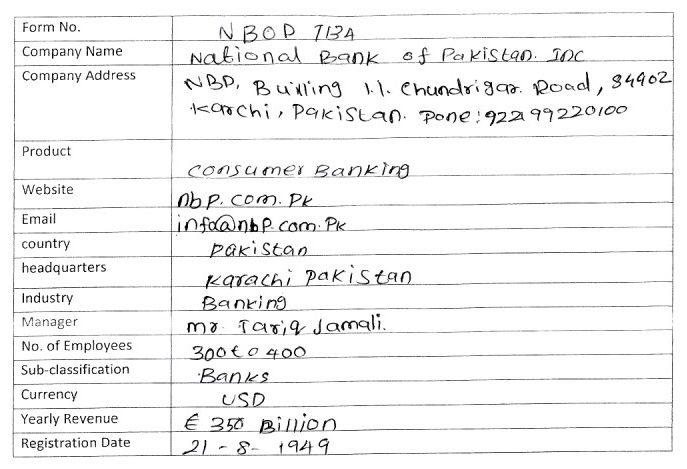 Form No. NBOD 713A
Company Name National Bank of Pakistan. Inc
Company Address NBP, Builling I.I. Chundrigar. Road, 84902
Karchi, Pakistan. Pone: 922199220100
Product Consumer Banking
Website nbp.com.Pk
Email info@nbp.com.Pk
country Pakistan
headquarters Karachi Pakistan
Industry Banking
Manager mr. Tariq Jamali.
No. of Employees 300 to 400
Sub-classification Banks
Currency USD
Yearly Revenue € 350 Billion
Registration Date 21-8-1949